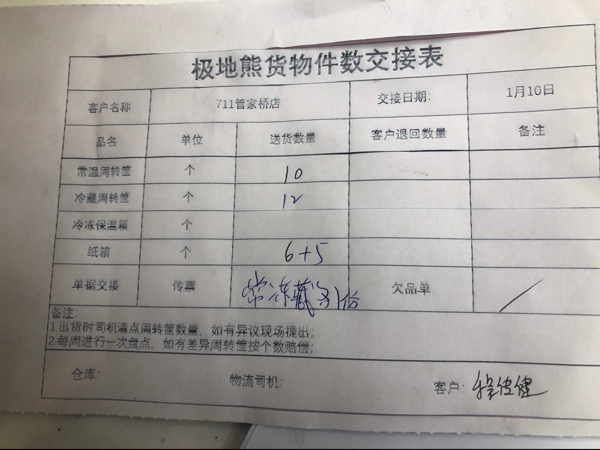 极地熊货物件数交接表
客户名称 711管家桥店 交接日期: 1月10日
品名 单位 送货数量 客户退回数量 备注
常温周转筐 个 10
冷藏周转筐 个 12
冷冻保温箱 个
纸箱 个 6+5
单据交接 传票 常冻藏各1份 欠品单 /
备注:
1.出货时司机清点周转筐数量,如有异议现场提出;
2.每周进行一次盘点,如有差异周转筐按个数赔偿;
仓库: 物流司机: 客户: